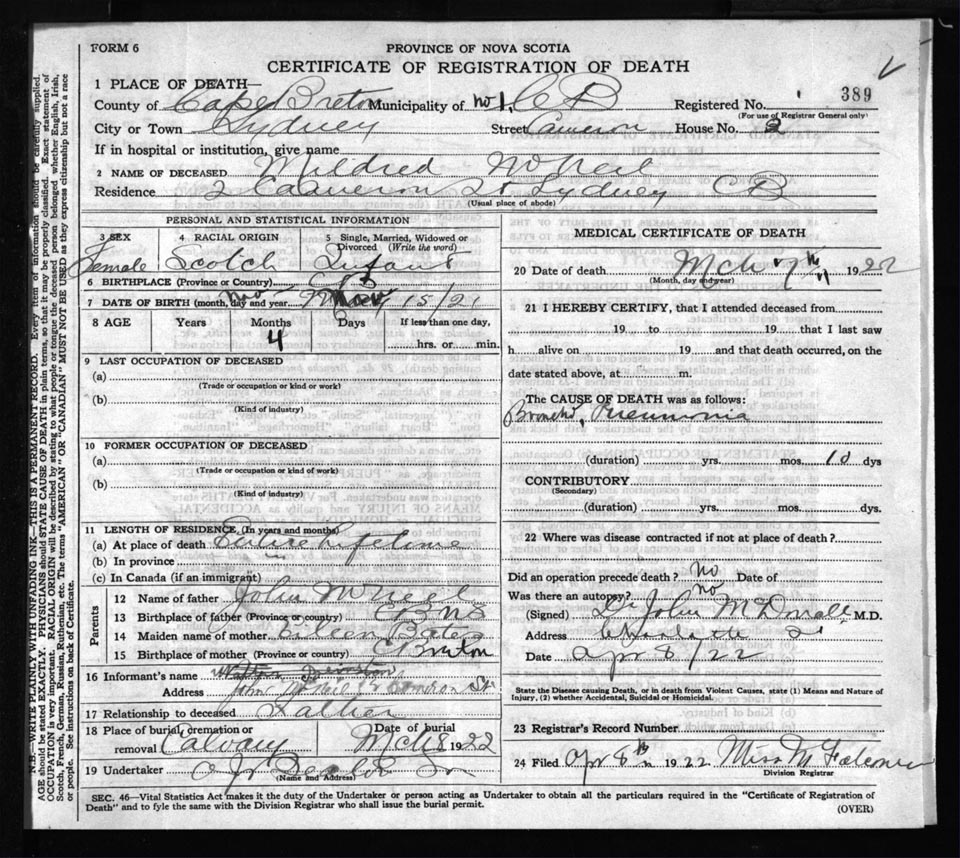 FORM 6
PROVINCE OF NOVA SCOTIA
CERTIFICATE OF REGISTRATION OF DEATH
1 PLACE OF DEATH—
County of Cape Breton Municipality of No 1. C B Registered No. 389
(For use of Registrar General only)
City or Town Sydney Street Cameron House No. 2
If in hospital or institution, give name
2 NAME OF DECEASED Mildred McNeil
Residence 2 Cameron St Sydney C B
(Usual place of abode)
PERSONAL AND STATISTICAL INFORMATION
3 SEX 4 RACIAL ORIGIN 5 Single, Married, Widowed or Divorced (Write the word)
Female Scotch Infant
6 BIRTHPLACE (Province or Country) C B
7 DATE OF BIRTH (month, day and year) Nov 15/21
8 AGE Years Months Days If less than one day,
4 hrs. or min.
9 LAST OCCUPATION OF DECEASED
(a)
(Trade or occupation or kind or work)
(b)
(Kind of industry)
10 FORMER OCCUPATION OF DECEASED
(a)
(Trade or occupation or kind of work)
(b)
(Kind of industry)
11 LENGTH OF RESIDENCE (In years and months)
(a) At place of death Entire Lifetime
(b) In province "
(c) In Canada (if an immigrant)
Parents
12 Name of father John McNeil
13 Birthplace of father (Province or country) C B N S
14 Maiden name of mother Eileen
15 Birthplace of mother (Province or country) C Breton
16 Informant's name
Address John McNeil 2 Cameron St
17 Relationship to deceased Father
18 Place of burial, cremation or removal Calvary Date of burial Mch 8 1922
19 Undertaker
(Name and Address)
MEDICAL CERTIFICATE OF DEATH
20 Date of death Mch 7th 1922
(Month, day and year)
21 I HEREBY CERTIFY, that I attended deceased from
19 to 19 that I last saw
h alive on 19 and that death occurred, on the
date stated above, at m.
The CAUSE OF DEATH was as follows:
Broncho Pneumonia
(duration) yrs. mos. 10 dys
CONTRIBUTORY
(Secondary)
(duration) yrs. mos. dys.
22 Where was disease contracted if not at place of death?
Did an operation precede death? No Date of
Was there an autopsy? No
(Signed) Dr John McDonald, M.D.
Address Charlotte St
Date Apr 8/22
State the Disease causing Death, or in death from Violent Causes, state (1) Means and Nature of
Injury, (2) whether Accidental, Suicidal or Homicidal.
23 Registrar's Record Number
24 Filed Apr 8th 1922 Miss M Falconer
Division Registrar
SEC. 46—Vital Statistics Act makes it the duty of the Undertaker or person acting as Undertaker to obtain all the particulars required in the "Certificate of Registration of
Death" and to fyle the same with the Division Registrar who shall issue the burial permit.
(OVER)
N.B.—WRITE PLAINLY WITH UNFADING INK—THIS IS A PERMANENT RECORD. Every item of information should be carefully supplied.
AGE should be stated EXACTLY. PHYSICIANS should STATE CAUSE OF DEATH in plain terms, so that it may be properly classified. Exact statement of
OCCUPATION is very important. RACIAL ORIGIN will be described by stating to what people or tongue the deceased person belonged, whether English, Irish,
Scotch, French, German, Russian, Ruthenian, etc. The terms "AMERICAN" OR "CANADIAN" MUST NOT BE USED as they express citizenship but not a race
or people. See instructions on back of Certificate.